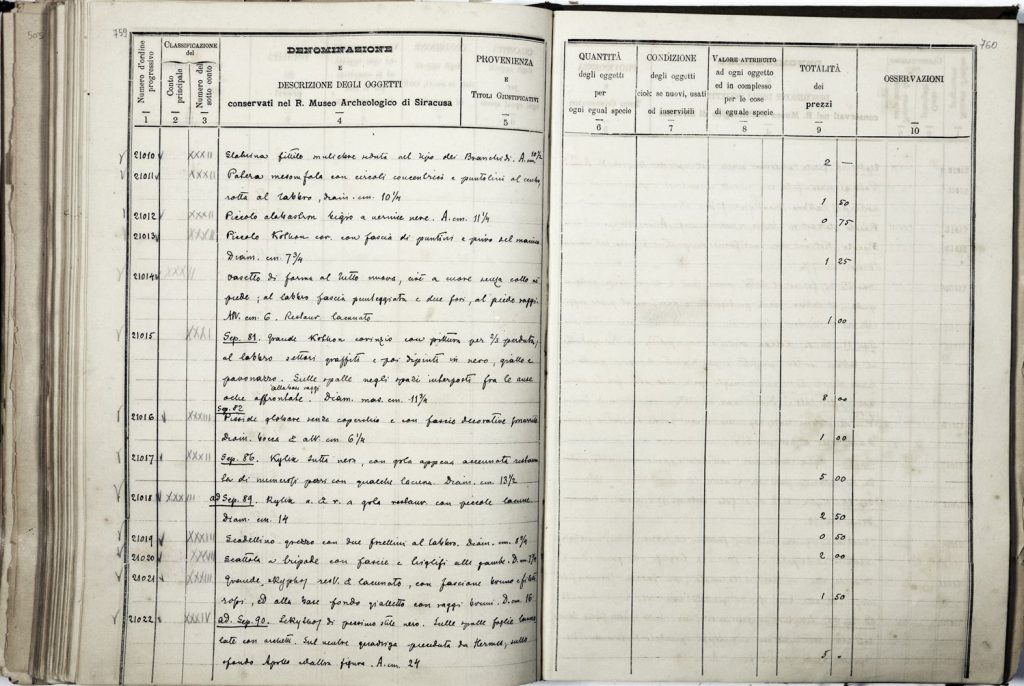 505
759
Numero d'ordine progressivo
CLASSIFICAZIONE del
Conto principale
Numero del sotto conto
DENOMINAZIONE
E
DESCRIZIONE DEGLI OGGETTI
conservati nel R. Museo Archeologico di Siracusa
PROVENIENZA
E
TITOLI GIUSTIFICATIVI
1 2 3 4 5
21010 XXXII Statuina fittile muliebre seduta nel tipo dei Branchidi. A. cm. 10 1/2
21011 XXXII Patera mesomfale con circoli concentrici e puntolini al centro,
rotta al labbro, diam. cm. 10 1/4
21012 XXXII Piccolo alabastron bigio a vernice nera. A. cm. 11 1/4
21013 XXXII Piccolo Kothon cor. con fascia di puntini e privo del manico
Diam. cm 7 3/4
21014 XXXII vasetto di forma al tutto nuova, cioè a cuore senza collo nè
piede; al labbro fascia punteggiata e due fori, al piede raggi.
Alt. cm. 6. Restaur. lacunato
21015 XXXI Sep. 81. Grande Kothon corinzio con pittura per 2/3 perduta;
al labbro settori graffiti e poi dipinti in nero, giallo e
pavonazzo. Sulle spalle negli spazi interposti fra le anse
oche affrontate. alla base raggi Diam. mas. cm. 11 3/4
Sep. 82
21016 XXXII Pisside globare senza coperchio e con fascie decorative
Diam. bocca & alt. cm 6 1/4
21017 XXXII Sep. 86. Kylix tutta nera, con gola appena accennata restaura
ta di numerosi pezzi con qualche lacuna. Diam. cm. 13 1/2
21018 XXXIII ad Sep. 89. Kylix a. & r. a gola restaur. con piccole lacune
Diam. cm. 14
21019 XXXIII Scodellino grezzo con due forellini al labbro. Diam. cm. 8 3/4
21020 XXXII Scattola a brigade con fascie e triglifi alle gambe. D. cm 7 1/4
21021 XXXIII Grande skyphos rest. & lacunato, con fascione bruno e filetti
rossi, ed alla base fondo gialletto con raggi bruni. D. cm. 16
21022 XXXIV ad. Sep. 90. Lekythos di pessimo stile nero. Sulle spalle foglie lanceo
late con archetti. Sul ventre quadriga preceduta da Hermes, sullo
sfondo Apollo ed altra figura. A. cm. 24
760
QUANTITÀ
degli oggetti
per
ogni egual specie
CONDIZIONE
degli oggetti
cioè: se nuovi, usati
od inservibili
VALORE ATTRIBUITO
ad ogni oggetto
ed in complesso
per le cose
di eguale specie
TOTALITÀ
dei
prezzi
OSSERVAZIONI
6 7 8 9 10
2 —
1 50
0 75
1 25
1 00
8 00
1 00
5 00
2 50
0 50
2 00
1 50
5 .